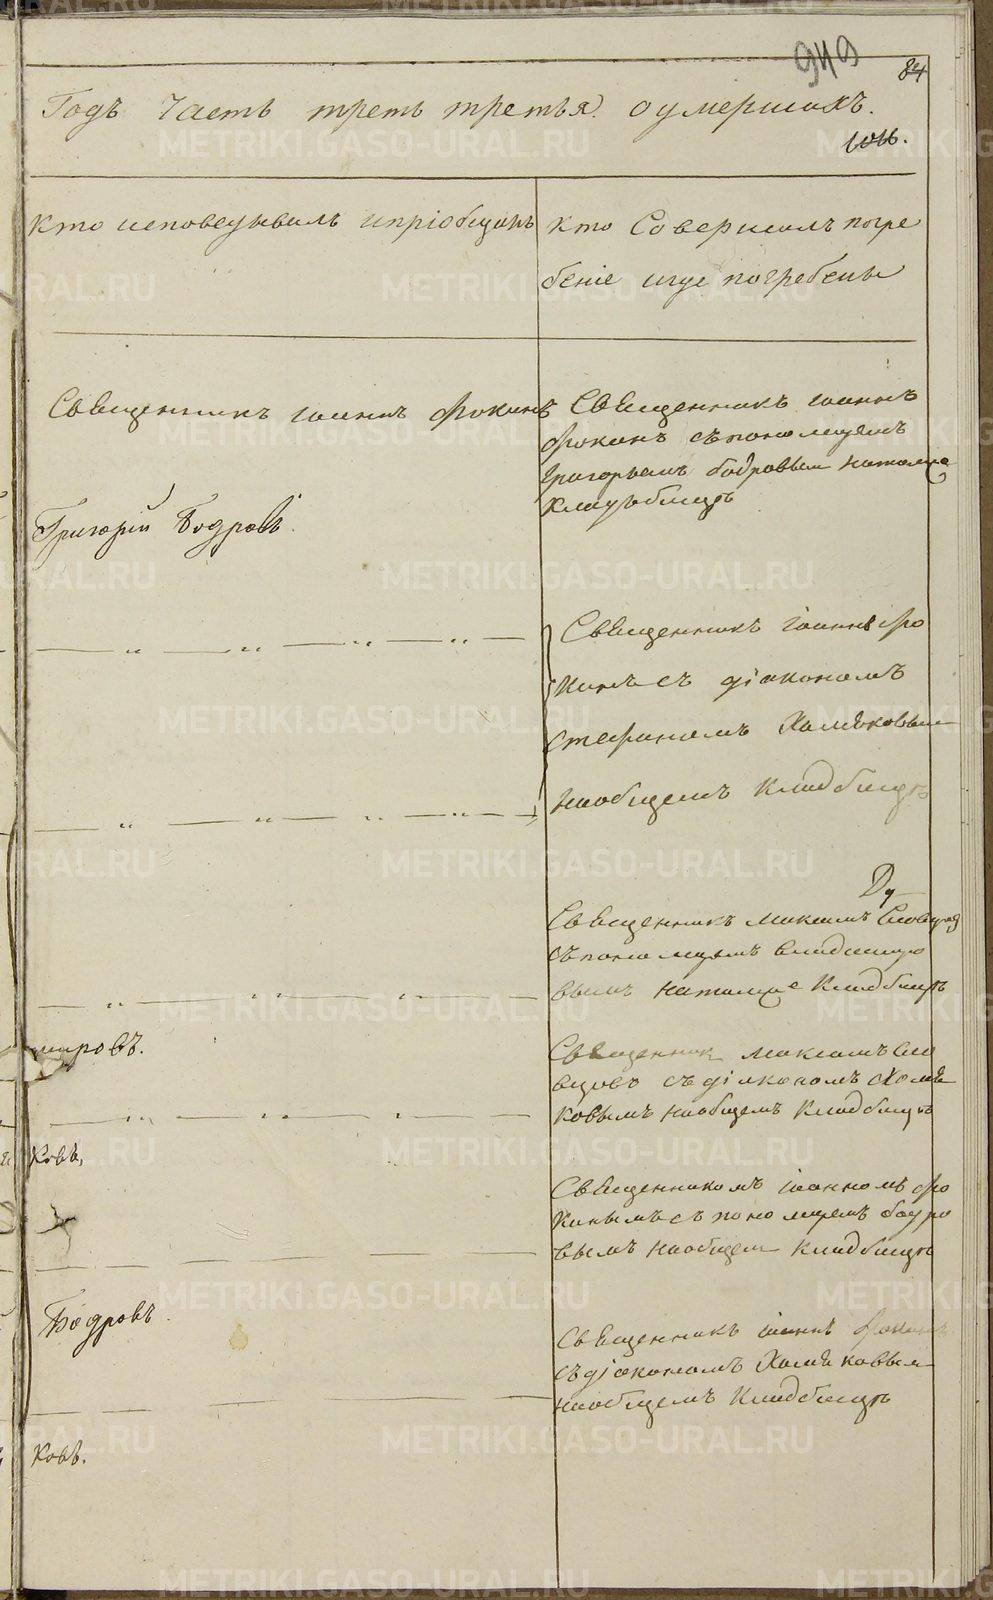 949
84
Годъ Часть треть третья. о умершихъ.
Кто исповедывалъ ипріобщалъ
кто Совершалъ погре
беніе игде погребены
Священникъ иоаннъ Фокинъ
Священникъ иоаннъ
Фокинъ съпономаремъ
Григорьемъ бодровым натомже
Кладъбищѣ
Григорій Бодровъ.
Священникъ іоаннъ Фо
кинъ съ діакономъ
стефаномъ Хомяковым
наобщемъ Кладбищѣ
Священникъ Максимъ Словцовъ
съпономаремъ владимиро
вымъ натомже Кладбищѣ
мировъ.
Священник Максимъ Сло
вцовъ съ діякономъ Хомя
ковымъ наобщемъ Кладбищѣ
ковъ,
Священникомъ іоанномъ Фо
кинымъ съ пономаремъ бодро
вымъ наобщем кладбищѣ
Бодровъ.
Священникъ іоаннъ Фокинъ
съ діакономъ Хомяковым
наобщемъ Кладбищѣ
ковъ.
METRIKI.GASO-URAL.RU